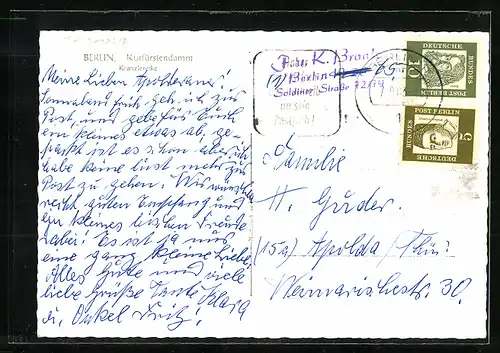 BERLIN, Kurfürstendamm
Kranzlerecke
Meine Lieben Apoldaraner!
Sonnabend früh, geh ich zur
Post, und gebe für Euch
ein kleines etwas ab, ge-
packt ist es schon aber ich
habe keine Lust mehr zur
Post zu gehen. Wir wünschen
recht guten Empfang und
ein kleines bischen Freude
dabei! Es ist ja nur
eine ganz kleine Liebe.
Alles Gute und viele
liebe Grüße Tante Klara
u. Onkel Fritz!
K. Brau
(1) Berlin 65
Soldiner Straße 42/19
DEUTSCHE
BUNDES
POST BERLIN
10
POST BERLIN
DEUTSCHE
BUNDES
5
Familie
H. Guder.
(15a) Apolda / Thür.
Weimarischestr. 30.